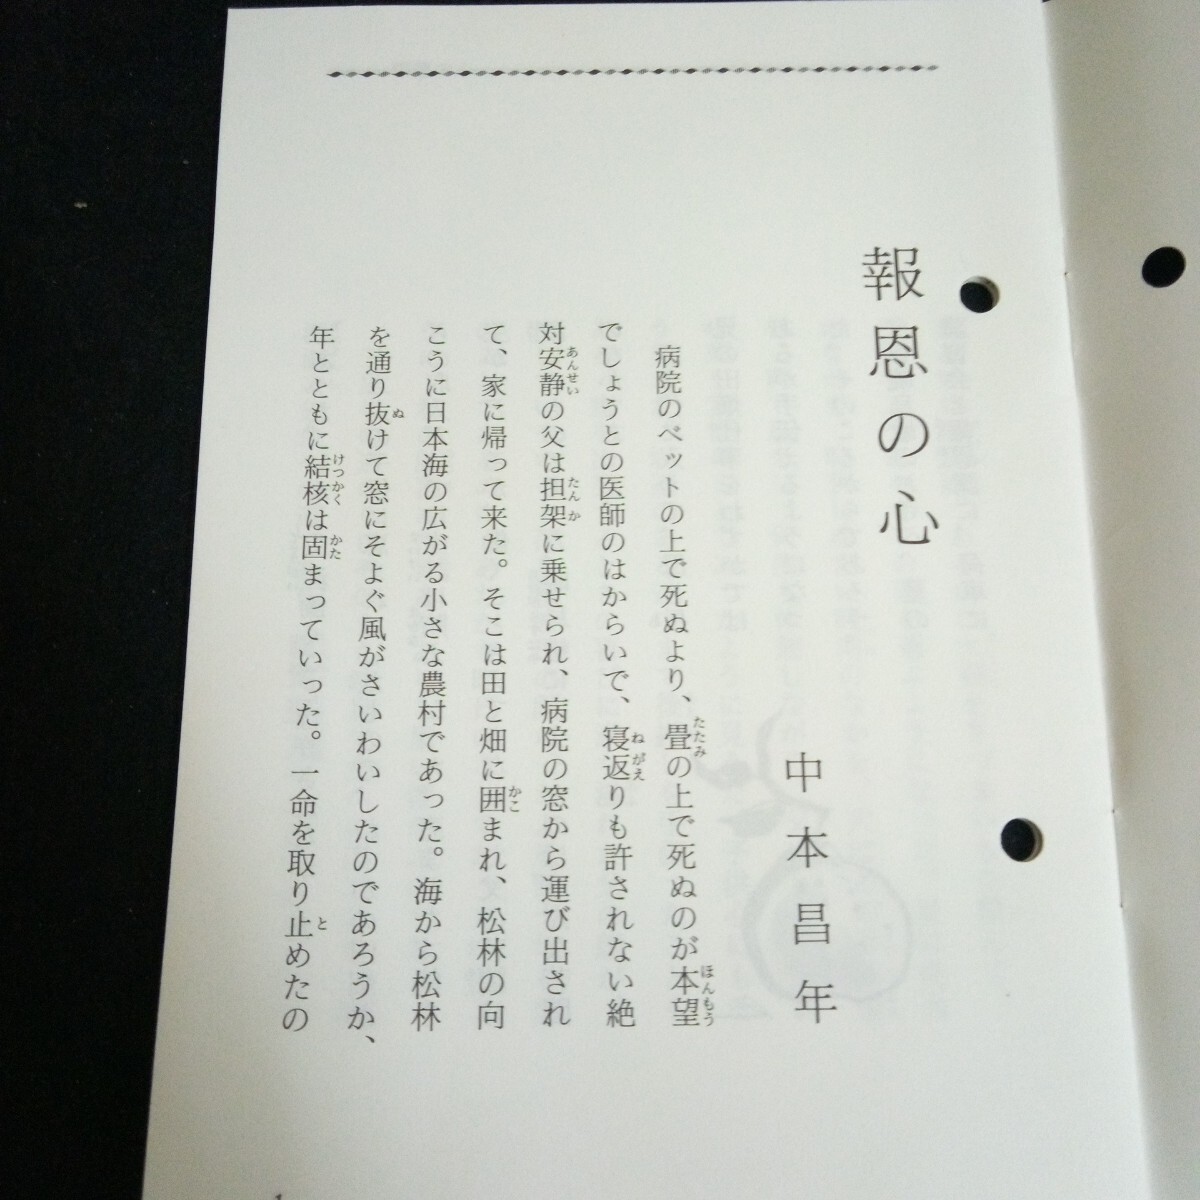 報恩の心
中本昌年
病院のベットの上で死ぬより、畳の上で死ぬのが本望
でしょうとの医師のはからいで、寝返りも許されない絶
対安静の父は担架に乗せられ、病院の窓から運び出され
て、家に帰って来た。そこは田と畑に囲まれ、松林の向
こうに日本海の広がる小さな農村であった。海から松林
を通り抜けて窓にそよぐ風がさいわいしたのであろうか、
年とともに結核は固まっていった。一命を取り止めたの